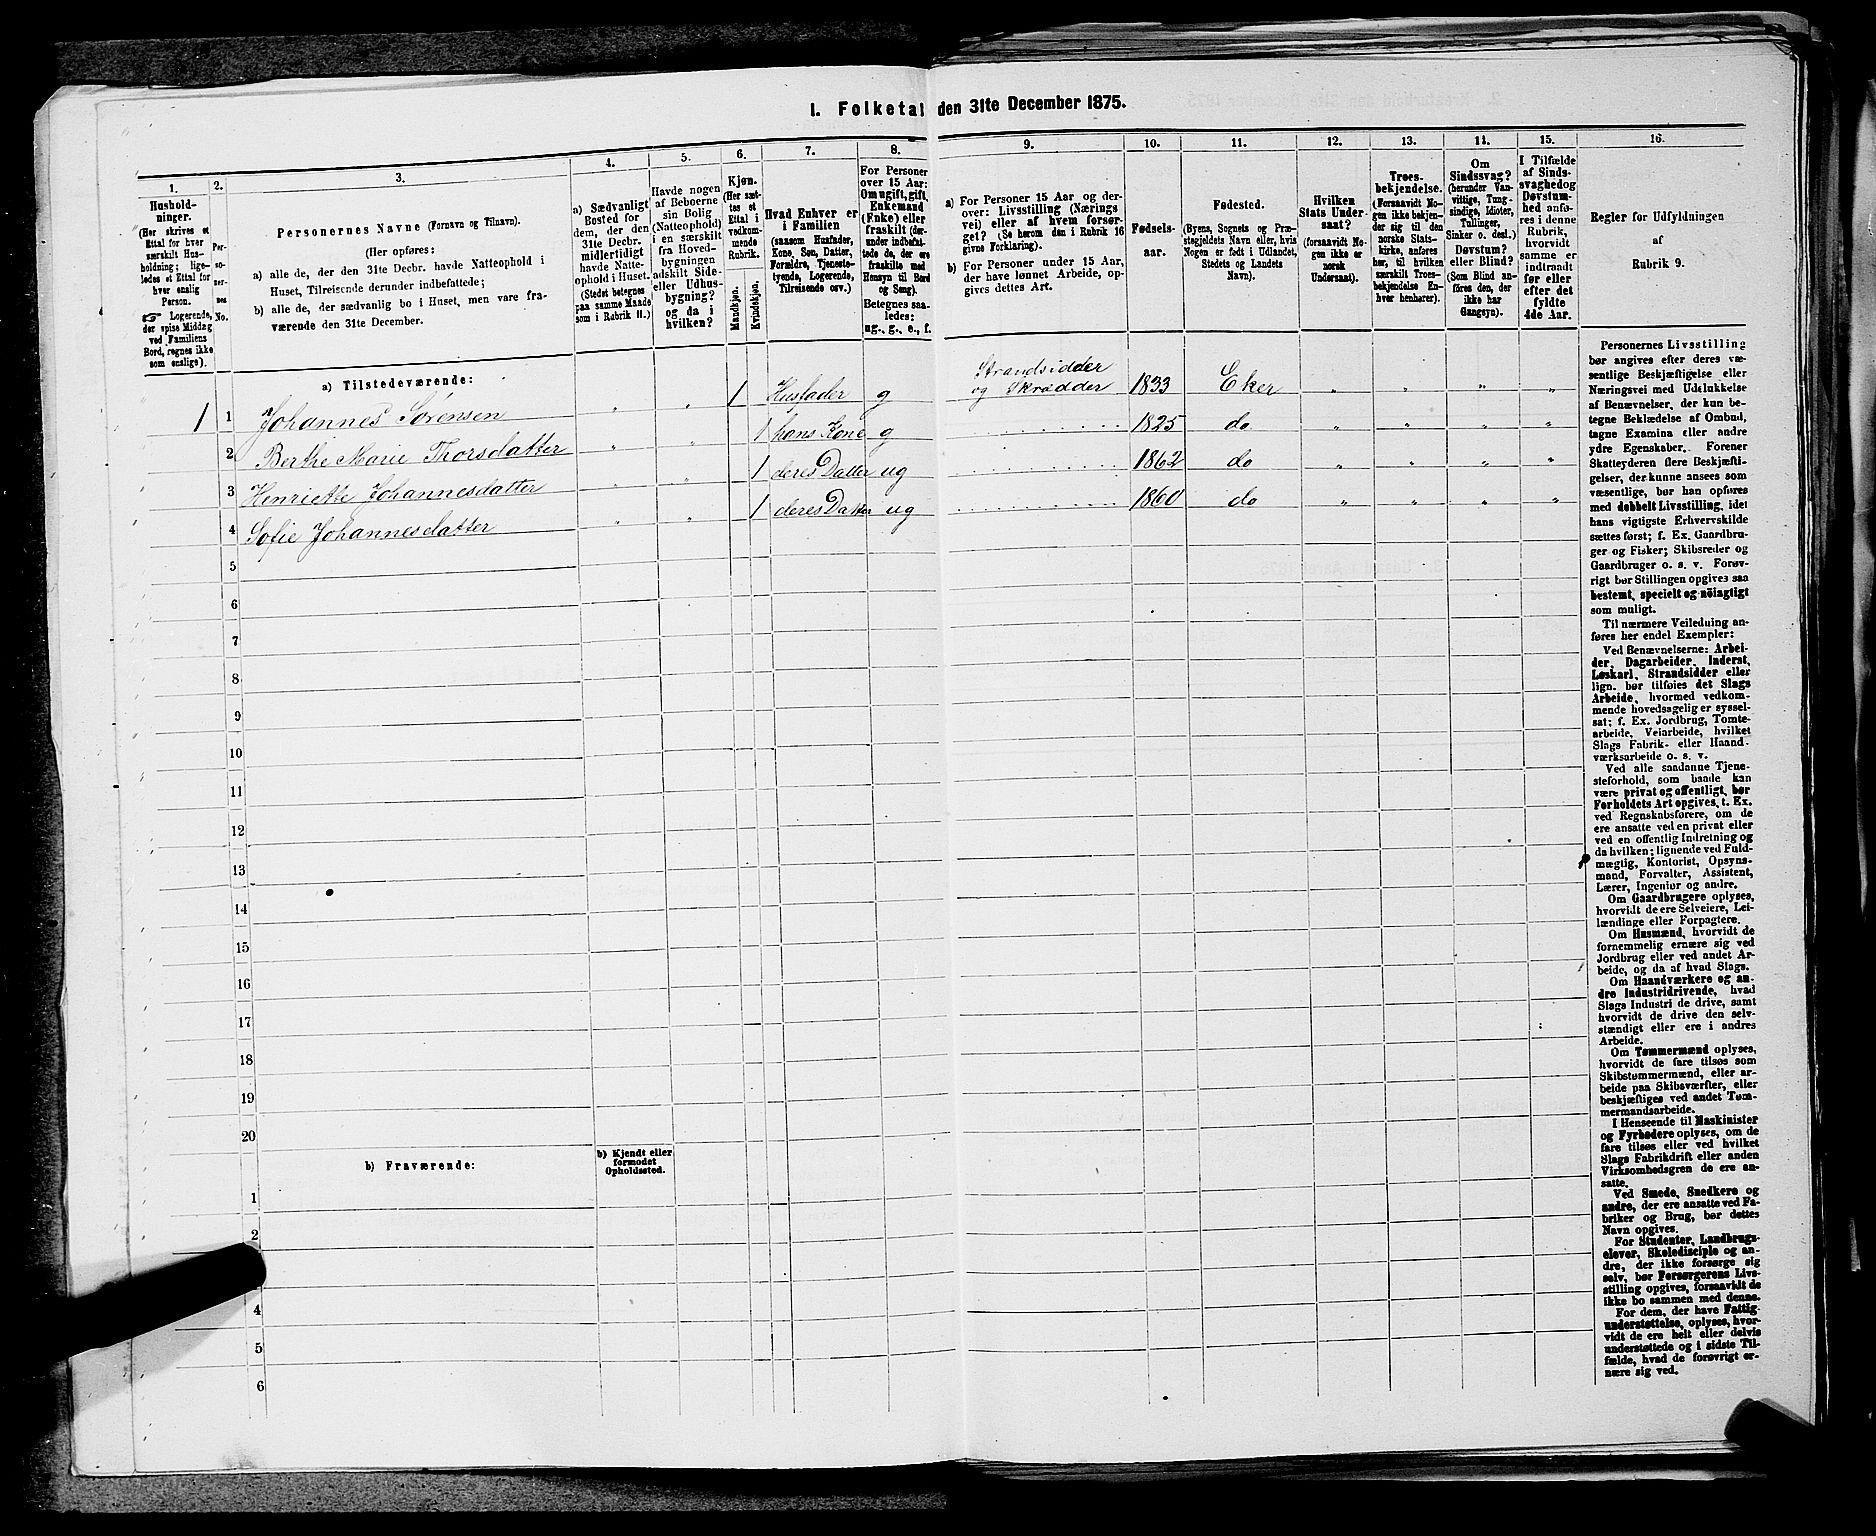 I. Folketal den 31te December 1875.
1.
2.
3.
4.
5.
6.
7.
8.
9.
10.
11.
12.
13.
14.
15.
16.
Hushold-
ninger.
(Her skrives et
Ettal for hver
særskilt Hus-
holdning; lige-
ledes et Ettal for
hver enslig
Person.
☞ Logerende,
der spise Middag
ved Familiens
Bord, regnes ikke
som enslige).
Per-
so-
ner-
nes
No.
Personernes Navne (Fornavn og Tilnavn).
(Her opføres:
a) alle de, der den 31te Decbr. havde Natteophold i
Huset, Tilreisende derunder indbefattede;
b) alle de, der sædvanlig bo i Huset, men vare fra-
værende den 31te December.
a) Sædvanligt
Bosted for
dem, der den
31te Decbr.
midlertidigt
havde Natte-
ophold i Huset.
(Stedet betegnes
paa samme Maade
som i Rubrik 11.)
Havde nogen
af Beboerne
sin Bolig
(Natteophold)
i en særskilt
fra Hoved-
bygningen
adskilt Side-
eller Udhus-
bygning?
og da i
hvilken?
Kjøn.
(Her sæt-
tes et
Ettal i
vedkom-
mende
Rubrik.
Mandkjøn.
Kvindekjøn.
Hvad Enhver er
i Familien
(saasom Husfader,
Kone, Søn, Datter,
Forældre, Tjeneste-
tyende, Logerende,
Tilreisende osv.)
For Personer
over 15 Aar:
Om ugift, gift,
Enkemand
(Enke) eller
fraskilt (der-
under indbefat-
tede de, der ere
fraskilte med
Hensyn til Bord
og Seng).
Betegnes saa-
ledes:
ug., g., e., f.
a) For Personer 15 Aar og der-
over: Livsstilling (Nærings
vei) eller af hvem forsør-
get? (Se herom den i Rubrik 16
givne Forklaring).
b) For Personer under 15 Aar,
der have lønnet Arbeide, op-
gives dettes Art.
Fødsels-
aar.
Fødested.
(Byens, Sognets og Præ-
stegjeldets Navn eller, hvis
Nogen er født i Udlandet,
Stedets og Landets
Navn).
Hvilken
Stats Under-
saat?
(forsaavidt No-
gen ikke er
norsk
Undersaat).
Troes-
bekjendelse.
(Forsaavidt No-
gen ikke bekjen-
der sig til den
norske Stats-
kirke, anføres
her, til hvilken
særskilt Troes-
bekjendelse En-
hver henhører).
Om
Sindssvag?
(herunder Van-
vittige, Tung-
sindige, Idioter,
Tullinger,
Sinker o. desl.)
Døvstum?
eller Blind?
(Som Blind an-
føres den, der
ikke har
Gangsyn).
I Tilfælde
af Sinds-
svaghed og
Døvstum-
hed anfø-
res i denne
Rubrik,
hvorvidt
samme er
indtraadt
før eller
efter det
fyldte
4de Aar.
Regler for Udfyldningen
af
Rubrik 9.
a) Tilstedeværende:
1 1 Johannes Sørensen " " 1 Husfader g Strandsidder
og Skrædder 1833 Eker " " " "
2 Berthe Marie Thorsdatter " " 1 hans Kone g 1825 do " " " "
3 Henriette Johannesdatter " " 1 deres Datter ug 1862 do " " " "
4 Sofie Johannesdatter " " 1 deres Datter ug 1860 do " " " "
5
6
7
8
9
10
11
12
13
14
15
16
17
18
19
20
b) Fraværende:
b) Kjendt eller
formodet
Opholdssted.
1
2
4
5
6
Personernes Livsstilling
bør angives efter deres væ-
sentlige Beskjæftigelse eller
Næringsvei med Udelukkelse
af Benævnelser, der kun be-
tegne Beklædelse af Ombud,
tagne Examina eller andre
ydre Egenskaber. Forener
Skatteyderen flere Beskjæfti-
gelser, der kunne ansees som
væsentlige, bør han opføres
med dobbelt Livsstilling, idet
hans vigtigste Erhvervskilde
sættes først; f. Ex. Gaardbru-
ger og Fisker; Skibsreder og
Gaardbruger o. s. v. Forøv-
rigt bør Stillingen opgives saa
bestemt, specielt og nöiagtigt
som muligt.
Til nærmere Veiledning an-
føres her endel Exempler:
Ved Benævnelserne: Arbei-
der, Dagarbeider, Inderst,
Løskarl, Strandsidder eller
lign. bør tilføies det Slags
Arbeide, hvormed vedkom-
mende hovedsagelig er syssel-
sat; f. Ex. Jordbrug, Tomte-
arbeide, Veiarbeide, hvilket
Slags Fabrik- eller Haand-
værksarbeide o. s. v.
Ved alle saadanne Tjene-
steforhold, som baade kan
være privat og offentligt, bør
Forholdets Art opgives, t. Ex.
ved Regnskabsførere, om de
ere ansatte ved en privat eller
ved en offentlig Indretning og
da hvilken; lignende ved Fuld-
mægtig, Kontorist, Opsyns-
mand, Forvalter, Assistent,
Lærer, Ingeniør og andre.
Om Gaardbrugere oplyses,
hvorvidt de ere Selveiere, Lei-
lændinge eller Forpagtere.
Om Husmænd, hvorvidt de
fornemmelig ernære sig ved
Jordbrug eller ved andet Ar-
beide, og da af hvad Slags.
Om Haandværkere og an-
dre Industridrivende, hvad
Slags Industri de drive, samt
hvorvidt de drive den selv-
stændigt eller ere i andres
Arbeide.
Om Tømmermænd oplyses,
hvorvidt de fare tilsøs som
Skibstømmermænd, eller ar-
beide paa Skibsværfter, eller
beskjæftiges ved andet Tøm-
mermandsarbeide.
I Henseende til Maskinister
og Fyrbødere oplyses, om de
fare tilsøs eller ved hvilket
Slags Fabrikdrift eller anden
Virksomhedsgren de ere an-
satte.
Ved Smede, Snedkere og
andre, der ere ansatte ved Fa-
briker og Brug, bør dettes
Navn opgives.
For Studenter, Landbrugs-
elever, Skoledisciple og an-
dre, der ikke forsørge sig
selv, bør Forsørgerens Livs-
stilling opgives, forsaavidt de
ikke bo sammen med denne.
For dem, der have Fattig-
understøttelse, oplyses, hvor-
vidt de ere helt eller delvis
understøttede og i sidste Til-
fælde, hvad de forøvrigt er-
nære sig ved.